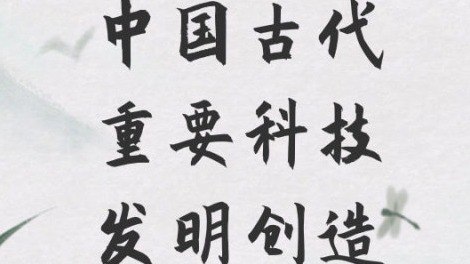 中国古代
重要科技
发明创造